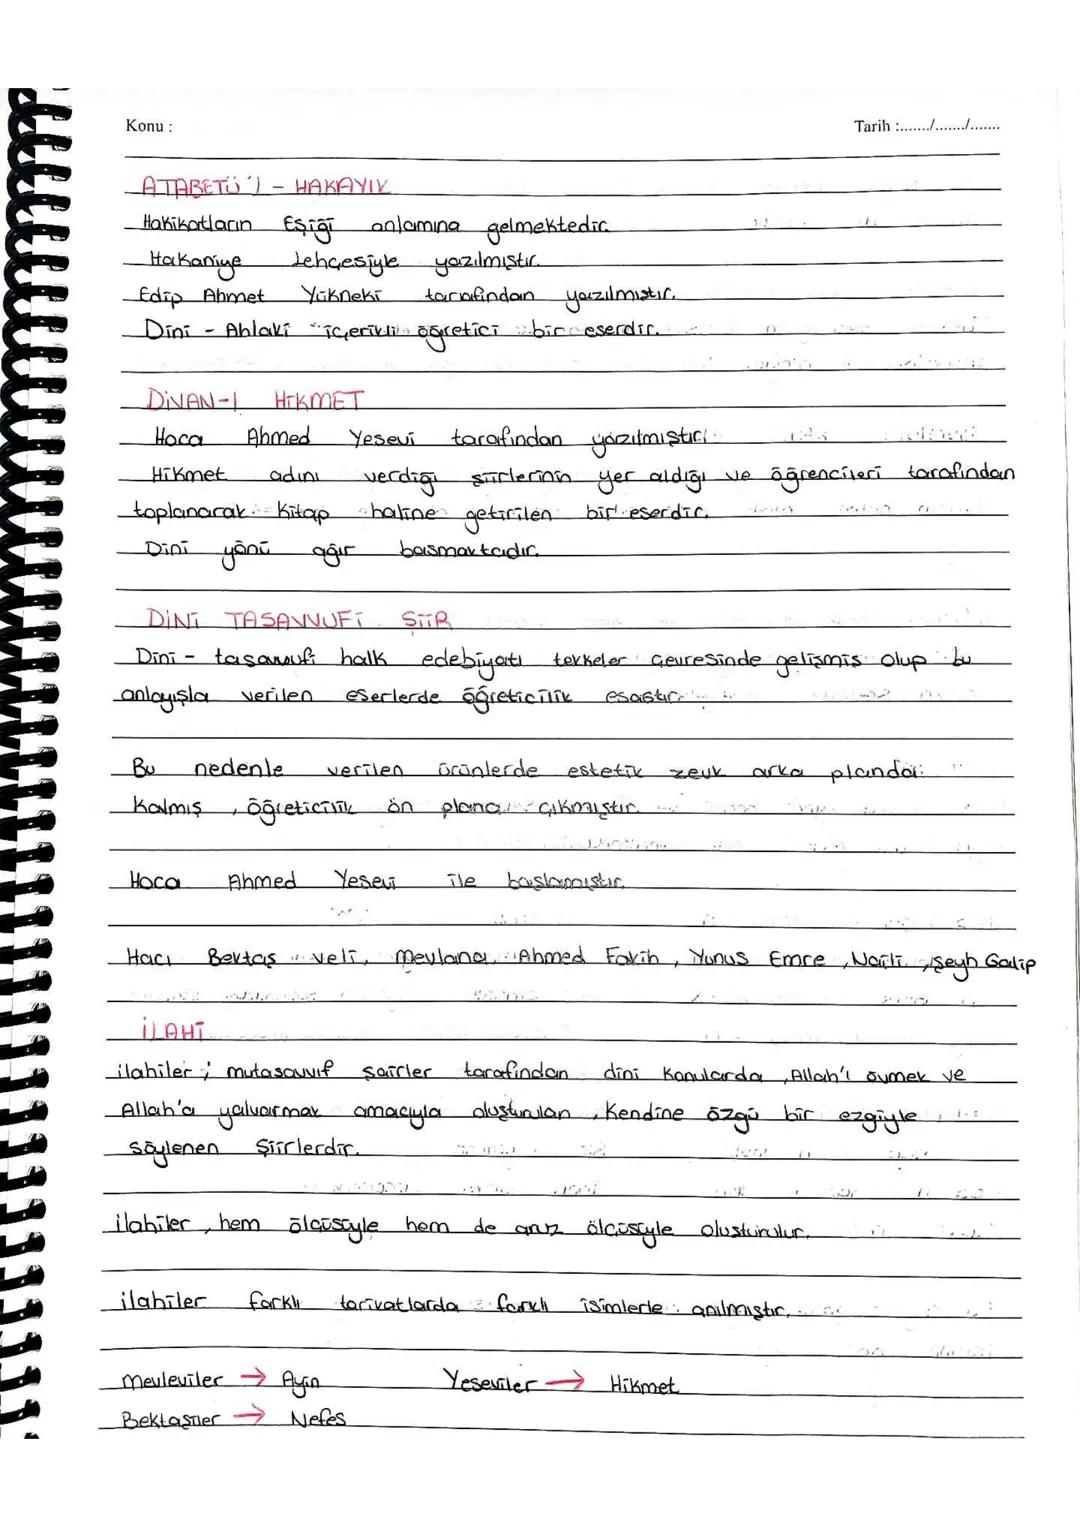 Konu :
Tarih :......./......./.......
ATABETÜ'l - HAKAYIK
Hakikatların Eşiği anlamına gelmektedir.
Hakaniye Lehçesiyle yazılmıştır.
Edip Ahmet Yükneki tarafından yazılmıştır.
Dini - Ahlaki içerikli öğretici bir eserdir.
DİVAN-I HİKMET
Hoca Ahmed Yesevi tarafından yazılmıştır.
Hikmet adını verdiği şiirlerinin yer aldığı ve öğrencileri tarafından
toplanarak kitap haline getirilen bir eserdir.
Dini yönü ağır basmaktadır.
DİNİ TASAVVUFİ ŞİİR
Dini - tasavvufi halk edebiyatı tekkeler çevresinde gelişmiş olup bu
anlayışla verilen eserlerde öğreticilik esastır.
Bu nedenle verilen ürünlerde estetik zevk arka planda
kalmış, öğreticilik ön plana çıkmıştır.
Hoca Ahmed Yesevi ile başlamıştır.
Hacı Bektaş veli, Mevlana, Ahmed Fakih, Yunus Emre, Naili, Şeyh Galip
İLAHİ
ilahiler ; mutasavvıf şairler tarafından dini konularda, Allah'ı övmek ve
Allah'a yalvarmak amacıyla oluşturulan, kendine özgü bir ezgiyle
söylenen şiirlerdir.
ilahiler, hem ölçüsüyle hem de aruz ölçüsüyle oluşturulur.
ilahiler farklı tarikatlarda farklı isimlerle anılmıştır.
Mevleviler → Ayin Yeseviler → Hikmet
Bektaşiler → Nefes